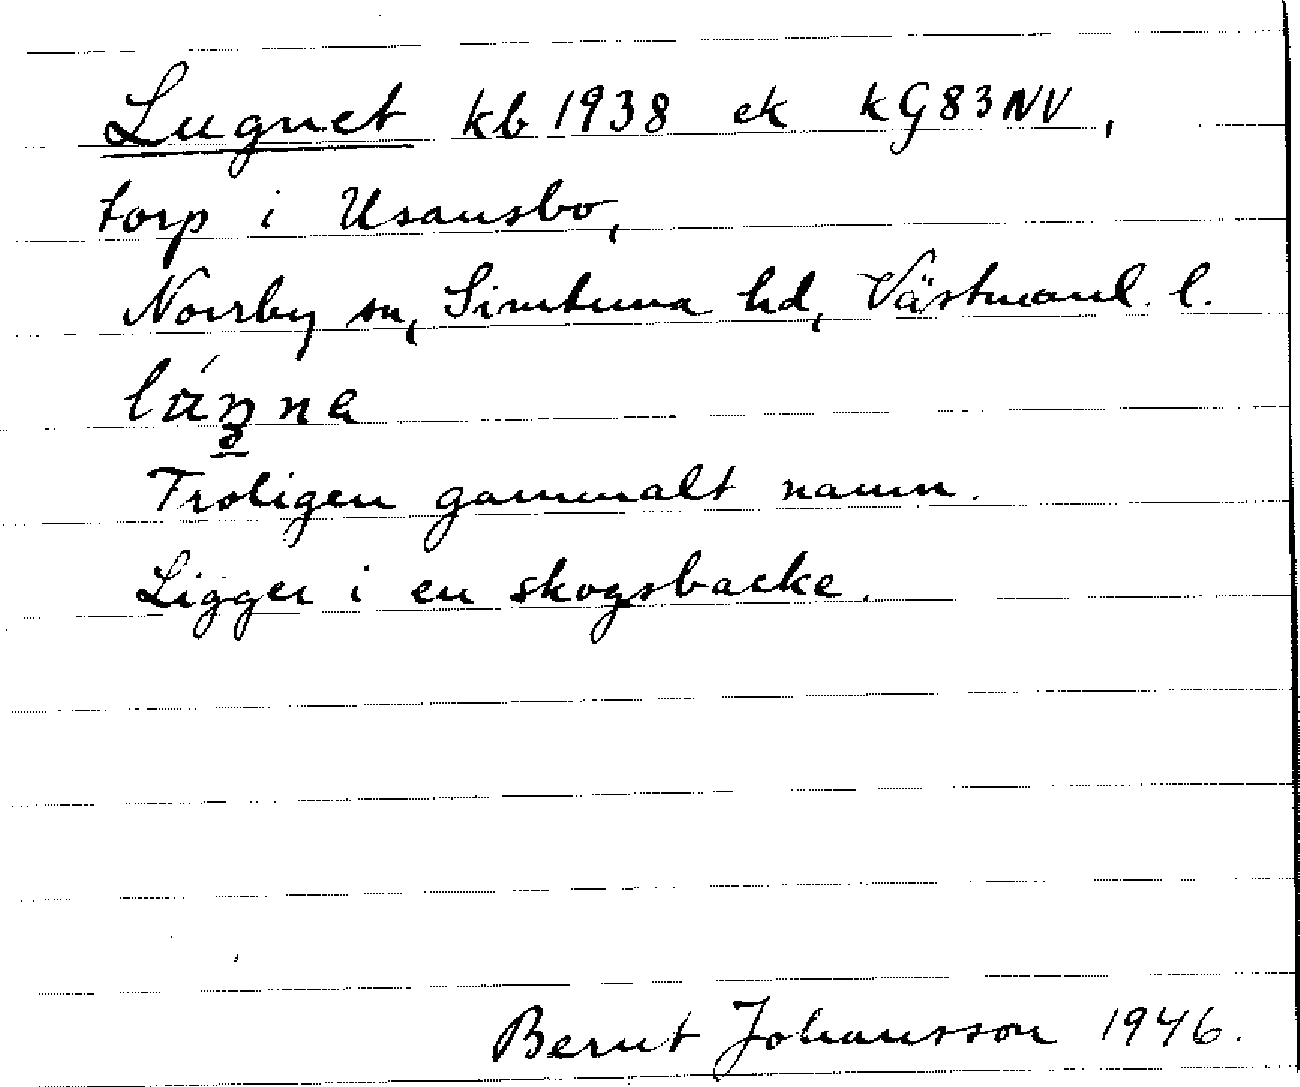 Lugnet kb 1938 ek kG83NV,
torp i Usansbo,
Norrby sn, Simtuna hd, Västmanl. l.
Troligen gammalt namn.
Ligger i en skogsbacke.
Bernt Johansson 1946.